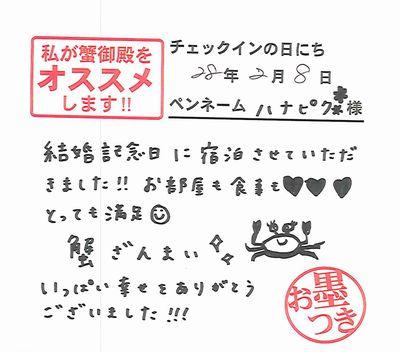 私が蟹御殿を
オススメ
します!!
チェックインの日にち
28年 2月 8日
ペンネーム ハナピク 様
結婚記念日に宿泊させていただ
きました!! お部屋も食事も♥♥♥
とっても満足☺
蟹ざんまい
いっぱい幸せをありがとう
ございました!!!
お墨
つき